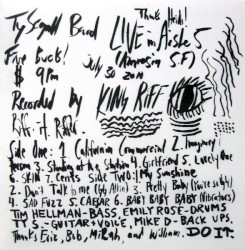 Ty Segall Band
Thanks Heidi!
LIVE in Aisle 5
Five Bucks!
(Amnesia S.F)
$ 9pm
July 30 2010
Recorded by KING RIFF
Riff. H. Riff.
Side One: 1 California Commercial 2. Imaginary
Person 3. Standing at the Station 4. Girlfriend 5. Lovely One
6. SKIN 7. Cents Side Two: 1 My Sunshine
2. Don't Talk to me (GG Allin) 3. Pretty Baby
4 SAD FUZZ 5 CAESAR 6. BABY BABY BABY (Vibrators)
TIM HELLMAN-BASS, EMILY ROSE-DRUMS
TY S.-GUITAR+VOICE, MIKE D-BACK UPS.
Thanks Eric, Bob, Mikey, and William. DO IT.